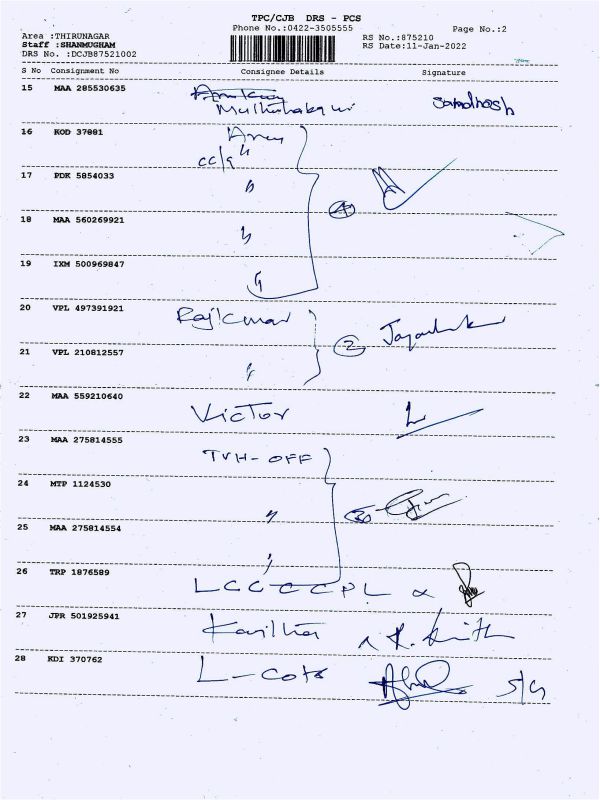 TPC/CJB DRS - PCS
Area :THIRUNAGAR Phone No.:0422-3505555 Page No.:2
Staff :SHANMUGHAM RS No.:875210
DRS No. :DCJB87521002 RS Date:11-Jan-2022
S No Consignment No Consignee Details Signature
15 MAA 285530635 Santhosh
16 KOD 37881
17 PDK 5854033
18 MAA 560269921 4
19 IXM 500969847
20 VPL 497391921 Rajkumar
21 VPL 210812557 2
22 MAA 559210640 Victor
23 MAA 275814555 TVH-OFF
24 MTP 1124530 3
25 MAA 275814554
26 TRP 1876589
27 JPR 501925941
28 KDI 370762 L-cots